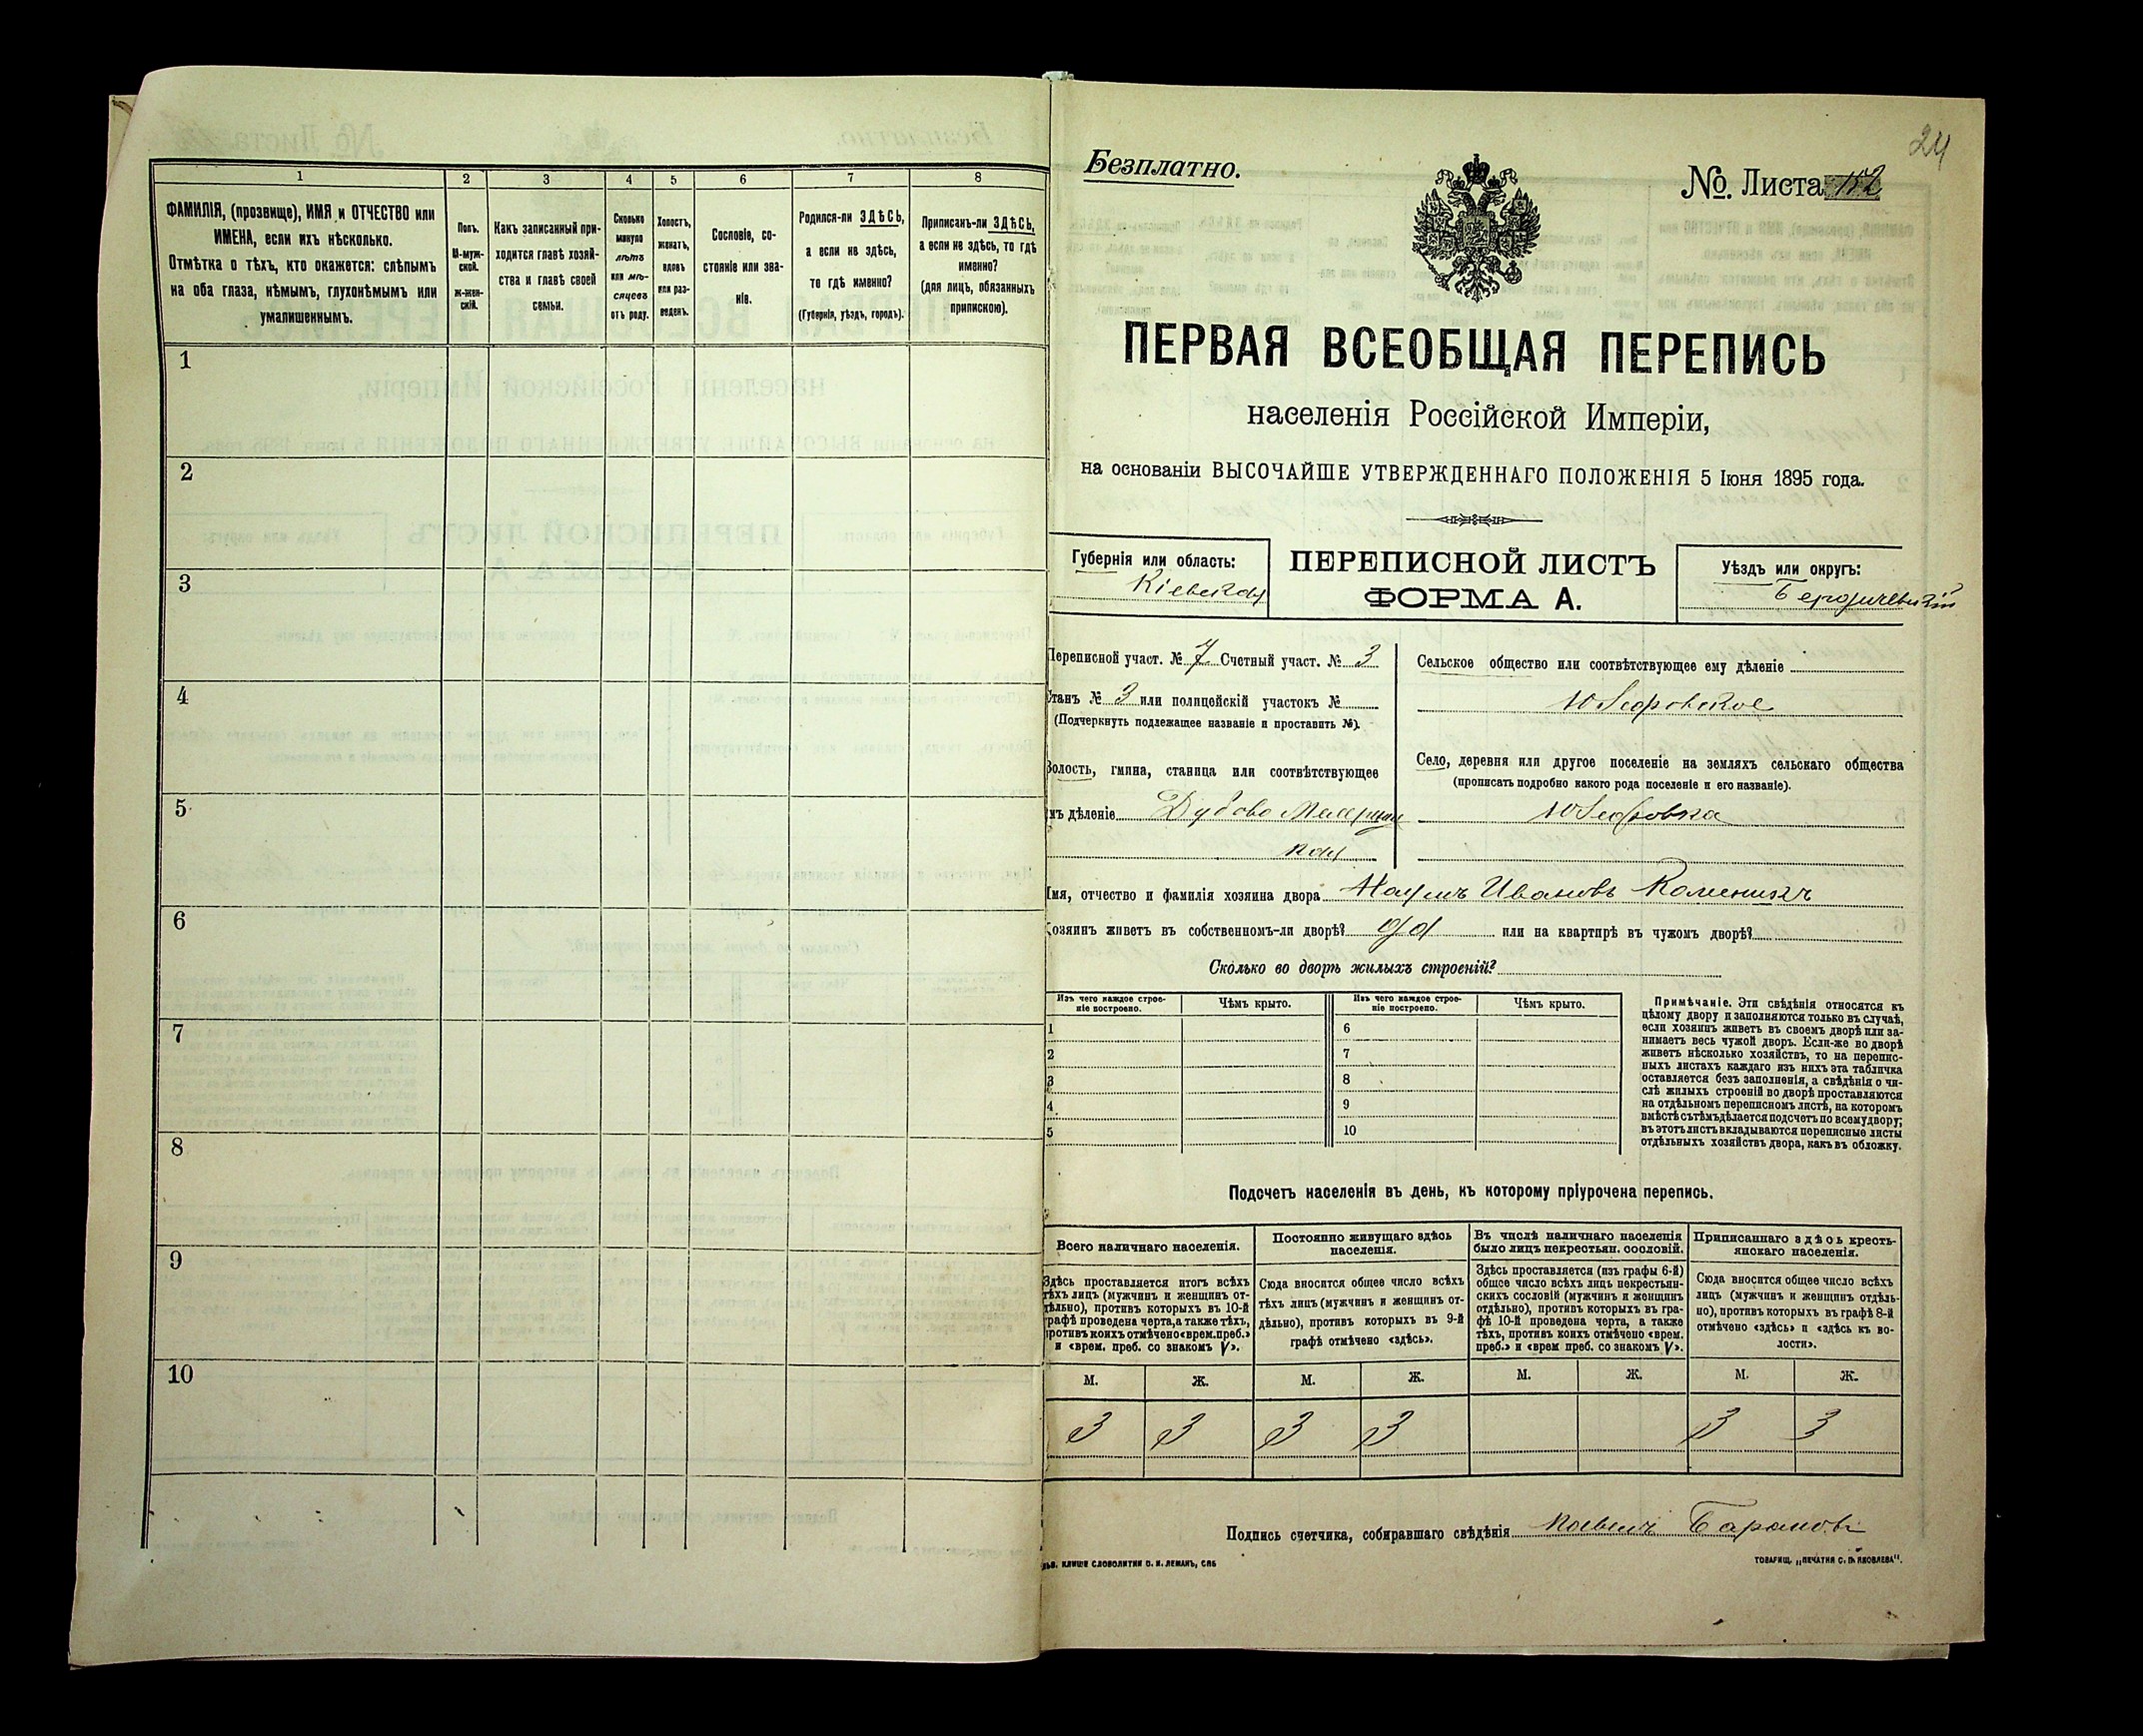 1 2 3 4 5 6 7 8
ФАМИЛІЯ, (прозвище), ИМЯ и ОТЧЕСТВО или
ИМЕНА, если ихъ нѣсколько.
Отмѣтка о тѣхъ, кто окажется: слѣпымъ
на оба глаза, нѣмымъ, глухонѣмымъ или
умалишеннымъ.
Полъ.
М-муж-
ской.
ж-жен-
скій.
Какъ записанный при-
ходится главѣ хозяй-
ства и главѣ своей
семьи.
Сколько
минуло
лѣтъ
или мѣ-
сяцевъ
отъ роду.
Холостъ,
женатъ,
вдовъ
или раз-
веденъ.
Сословіе, со-
стояніе или зва-
ніе.
Родился-ли ЗДѢСЬ,
а если не здѣсь,
то гдѣ именно?
(Губернія, уѣздъ, городъ).
Приписанъ-ли ЗДѢСЬ,
а если не здѣсь, то гдѣ
именно?
(для лицъ, обязанныхъ
припискою).
1
2
3
4
5
6
7
8
9
10
24
Безплатно.
№ Листа 152
ПЕРВАЯ ВСЕОБЩАЯ ПЕРЕПИСЬ
населенія Россійской Имперіи,
на основаніи ВЫСОЧАЙШЕ УТВЕРЖДЕННАГО ПОЛОЖЕНІЯ 5 Іюня 1895 года.
Губернія или область:
Кіевская
ПЕРЕПИСНОЙ ЛИСТЪ
ФОРМА А.
Уѣздъ или округъ:
Бердичевскій
Переписной участ. № 7 Счетный участ. № 3
Станъ № 3 или полицейскій участокъ №
(Подчеркнуть подлежащее названіе и проставить №).
Волость, гмина, станица или соотвѣтствующее
имъ дѣленіе
Сельское общество или соотвѣтствующее ему дѣленіе
Юзефовское
Село, деревня или другое поселеніе на земляхъ сельскаго общества
(прописать подробно какого рода поселеніе и его названіе).
Юзефовка
Имя, отчество и фамилія хозяина двора Наумъ Ивановъ Каменюкъ
Хозяинъ живетъ въ собственномъ-ли дворѣ? да или на квартирѣ въ чужомъ дворѣ?
Сколько во дворѣ жилыхъ строеній?
Изъ чего каждое строе-
ніе построено.
Чѣмъ крыто.
Изъ чего каждое строе-
ніе построено.
Чѣмъ крыто.
1 6
2 7
3 8
4 9
5 10
Примѣчаніе. Эти свѣдѣнія относятся къ
цѣлому двору и заполняются только въ случаѣ,
если хозяинъ живетъ въ своемъ дворѣ или за-
нимаетъ весь чужой дворъ. Если-же во дворѣ
живетъ нѣсколько хозяйствъ, то на перепис-
ныхъ листахъ каждаго изъ нихъ эта табличка
оставляется безъ заполненія, а свѣдѣнія о чи-
слѣ жилыхъ строеній во дворѣ проставляются
на отдѣльномъ переписномъ листѣ, на которомъ
вмѣстѣ съ тѣмъ дѣлается подсчетъ по всему двору;
въ этотъ листъ вкладываются переписные листы
отдѣльныхъ хозяйствъ двора, какъ въ обложку.
Подсчетъ населенія въ день, къ которому пріурочена перепись.
Всего наличнаго населенія.
Здѣсь проставляется итогъ всѣхъ
тѣхъ лицъ (мужчинъ и женщинъ от-
дѣльно), противъ которыхъ въ 10-й
графѣ проведена черта, а также тѣхъ,
противъ коихъ отмѣчено «врем. преб.»
и «врем. преб. со знакомъ V».
Постоянно живущаго здѣсь
населенія.
Сюда вносится общее число всѣхъ
тѣхъ лицъ (мужчинъ и женщинъ от-
дѣльно), противъ которыхъ въ 9-й
графѣ отмѣчено «здѣсь».
Въ числѣ наличнаго населенія
было лицъ некрестьян. сословій.
Здѣсь проставляется (изъ графы 6-й)
общее число всѣхъ лицъ некрестьян-
скихъ сословій (мужчинъ и женщинъ
отдѣльно), противъ которыхъ въ гра-
фѣ 10-й проведена черта, а также
тѣхъ, противъ коихъ отмѣчено «врем.
преб.» и «врем преб. со знакомъ V».
Приписаннаго здѣсь кресть-
янскаго населенія.
Сюда вносится общее число всѣхъ
лицъ (мужчинъ и женщинъ отдѣль-
но), противъ которыхъ въ графѣ 8-й
отмѣчено «здѣсь» и «здѣсь къ во-
лости».
М. Ж. М. Ж. М. Ж. М. Ж.
3 3 3 3 3 3
Подпись счетчика, собиравшаго свѣдѣнія Павелъ Барановъ
КЛИШЕ СЛОВОЛИТНИ О. И. ЛЕМАНЪ, СПБ
ТОВАРИЩ. „ПЕЧАТНЯ С. П. ЯКОВЛЕВА".